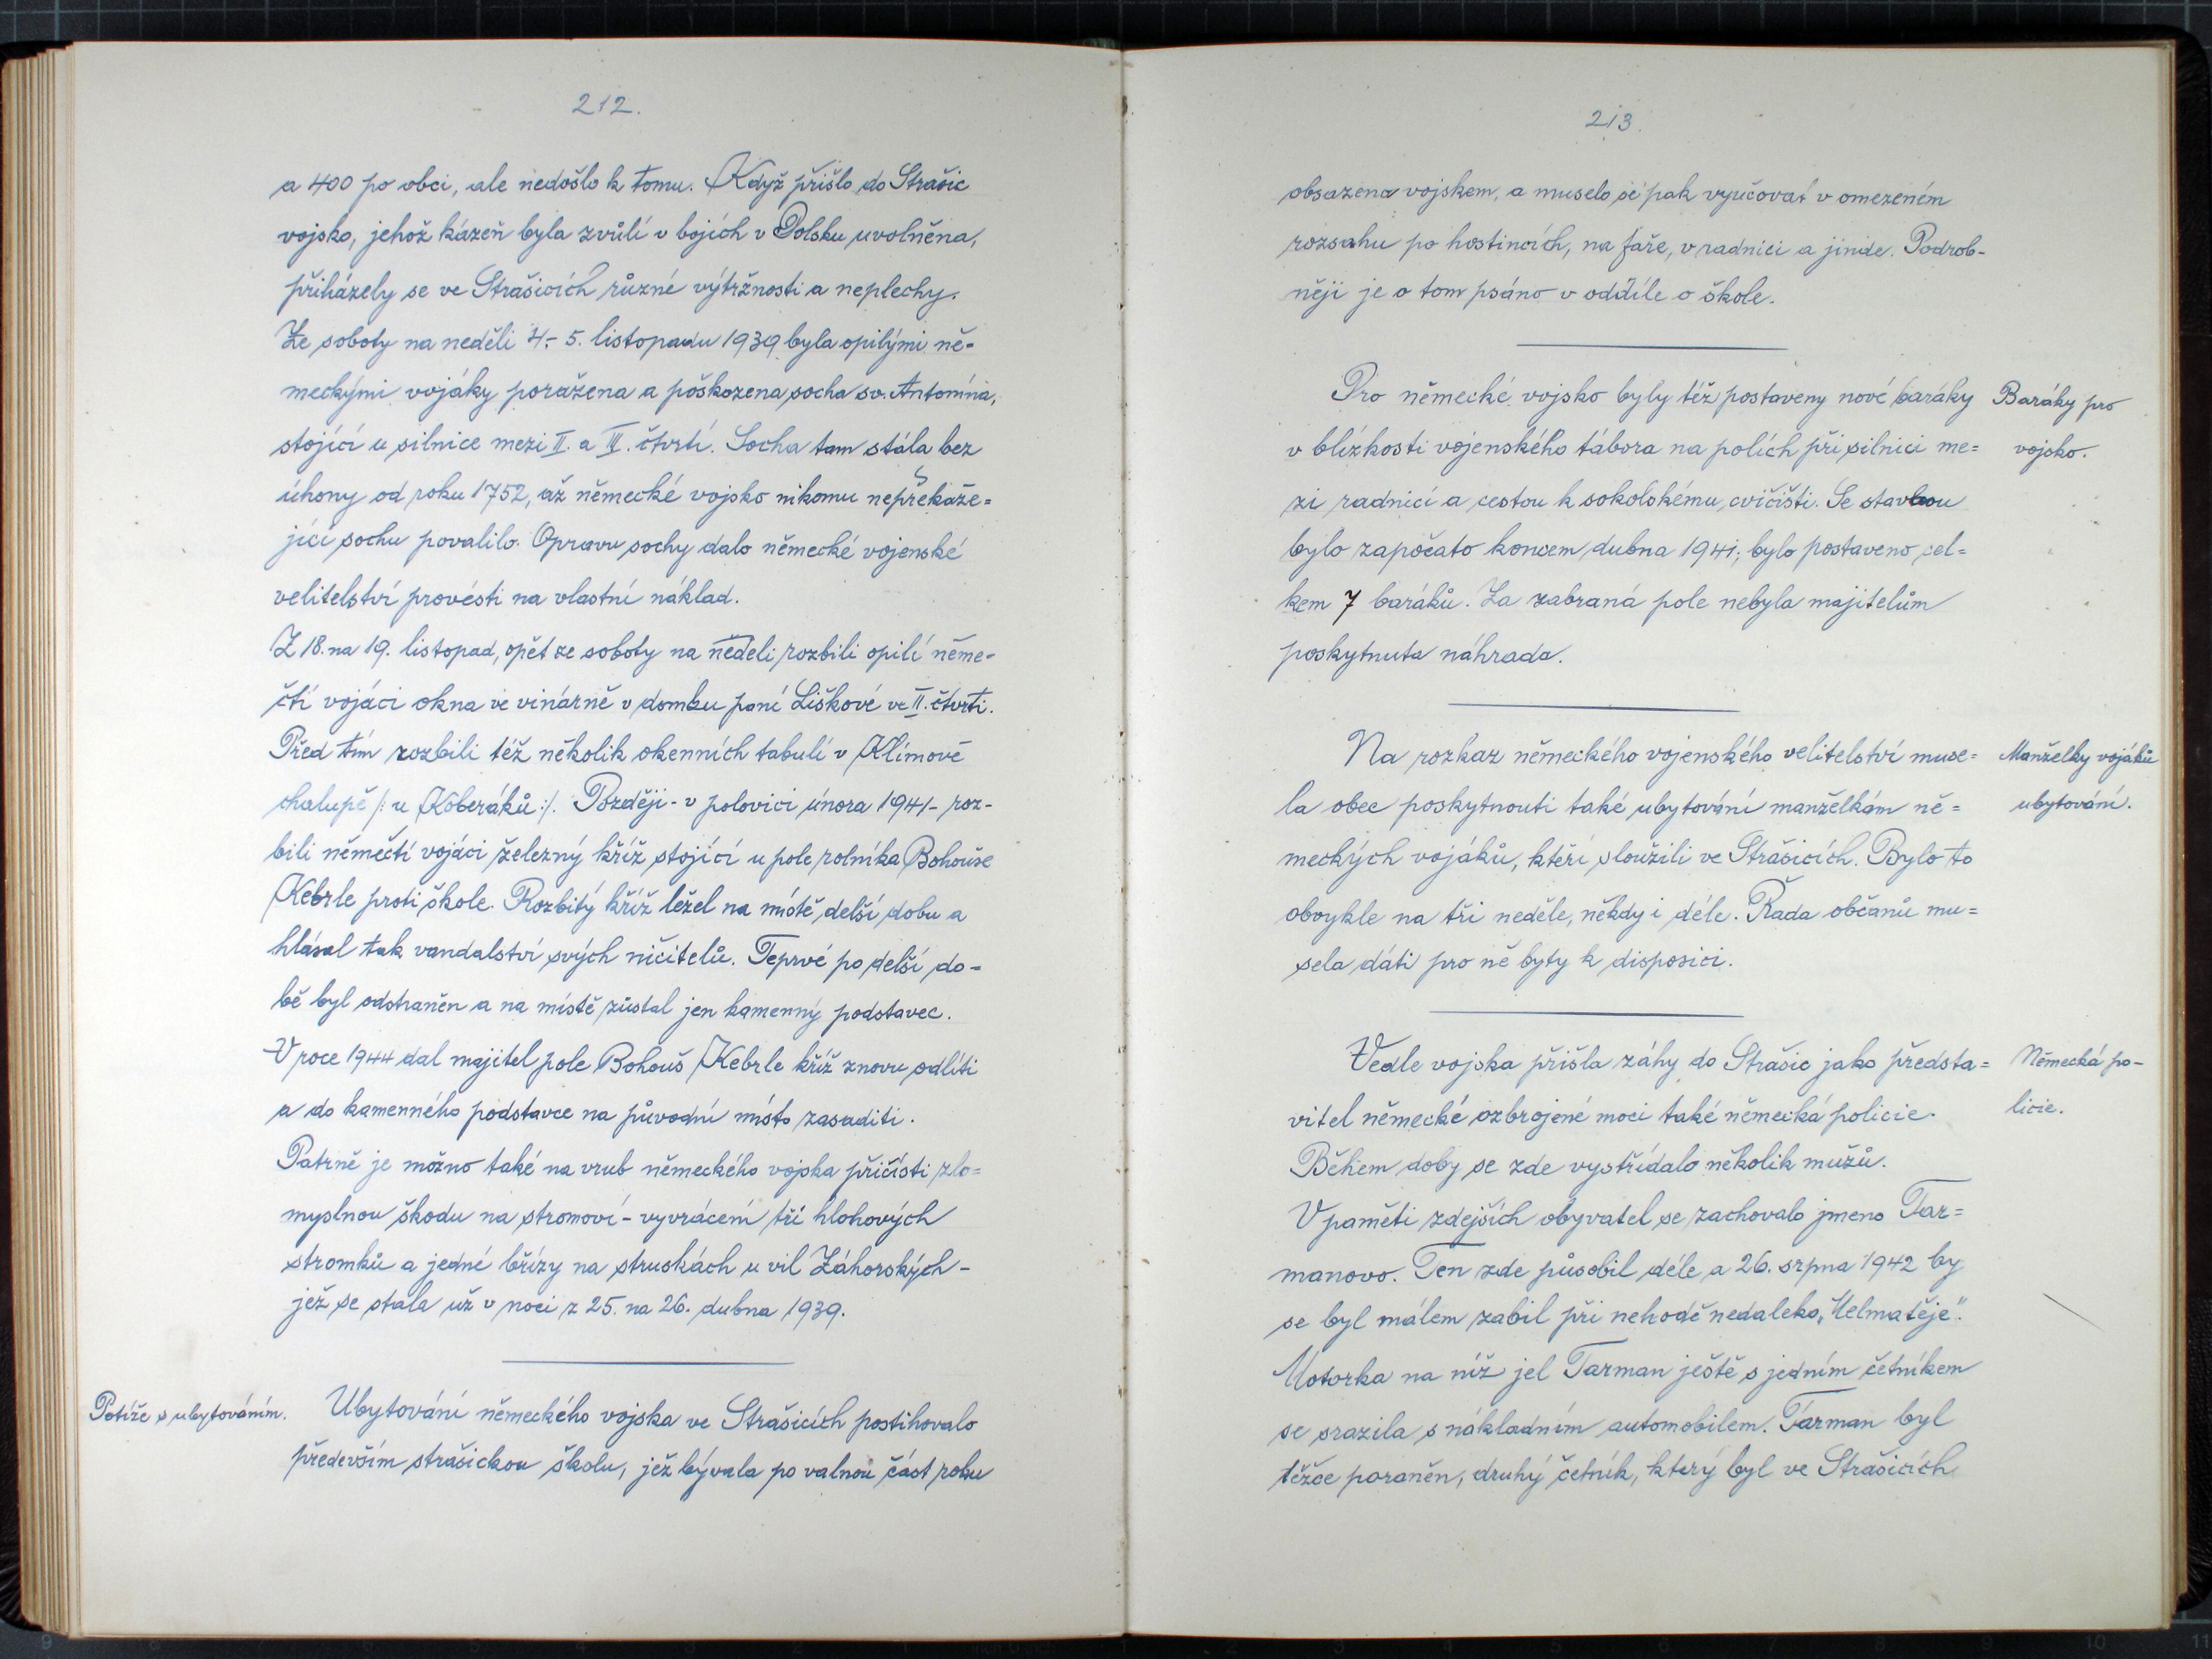 212.
a 400 po obci, ale nedošlo k tomu. Když přišlo do Strašic
vojsko, jehož kázeň byla zvůlí v bojích v Polsku uvolněna,
přiházely se ve Strašicích různé výtržnosti a neplechy.
Ze soboty na neděli 4.- 5. listopadu 1939 byla opilými ně-
meckými vojáky poražena a poškozena socha sv. Antonína,
stojící u silnice mezi II. a III. čtvrtí. Socha tam stála bez
úhony od roku 1752, až německé vojsko nikomu nepřekáže=
jící sochu povalilo. Opravu sochy dalo německé vojenské
velitelství provésti na vlastní náklad.
Z 18. na 19. listopad, opět ze soboty na neděli rozbili opilí něme-
čtí vojáci okna ve vinárně v domku paní Liškové ve II. čtvrti.
Před tím rozbili též několik okenních tabulí v Klímově
chalupě /: u Koberáků :/. Později - v polovici února 1941 - roz-
bili němečtí vojáci železný kříž stojící u pole rolníka Bohouše
Kebrle proti škole. Rozbitý kříž ležel na místě delší dobu a
hlásal tak vandalství svých ničitelů. Teprvé po delší do-
bě byl odstraněn a na místě zůstal jen kamenný podstavec.
V roce 1944 dal majitel pole Bohouš Kebrle kříž znovu odlíti
a do kamenného podstavce na původní místo zasaditi.
Patrně je možno také na vrub německého vojska přičísti zlo=
myslnou škodu na stromoví - vyvrácení tří hlohových
stromků a jedné břízy na struskách u vil Záhorských -
jež se stala už v noci z 25. na 26. dubna 1939.
Potíže s ubytováním.
Ubytování německého vojska ve Strašicích postihovalo
především strašickou školu, jež bývala po valnou část roku
213.
obsazena vojskem, a muselo se pak vyučovat v omezeném
rozsahu po hostincích, na faře, v radnici a jinde. Podrob-
něji je o tom psáno v oddíle o škole.
Pro německé vojsko byly též postaveny nové baráky
Baráky pro
v blízkosti vojenského tábora na polích při silnici me=
vojsko.
zi radnicí a cestou k sokolskému cvičišti. Se stavbou
bylo započato koncem dubna 1941; bylo postaveno cel=
kem 7 baráků. Za zabraná pole nebyla majitelům
poskytnuta náhrada.
Na rozkaz německého vojenského velitelství muse=
Manželky vojáků
la obec poskytnouti také ubytování manželkám ně=
ubytování.
meckých vojáků, kteří sloužili ve Strašicích. Bylo to
obvykle na tři neděle, někdy i déle. Řada občanů mu=
sela dáti pro ně byty k disposici.
Vedle vojska přišla záhy do Strašic jako předsta=
Německá po-
vitel německé ozbrojené moci také německá policie.
licie.
Během doby se zde vystřídalo několik mužů.
V paměti zdejších obyvatel se zachovalo jmeno Tar=
manovo. Ten zde působil déle a 26. srpna 1942 by
se byl málem zabil při nehodě nedaleko „Uelmatěje".
Motorka na níž jel Tarman ještě s jedním četníkem
se srazila s nákladním automobilem. Tarman byl
těžce poraněn, druhý četník, který byl ve Strašicích